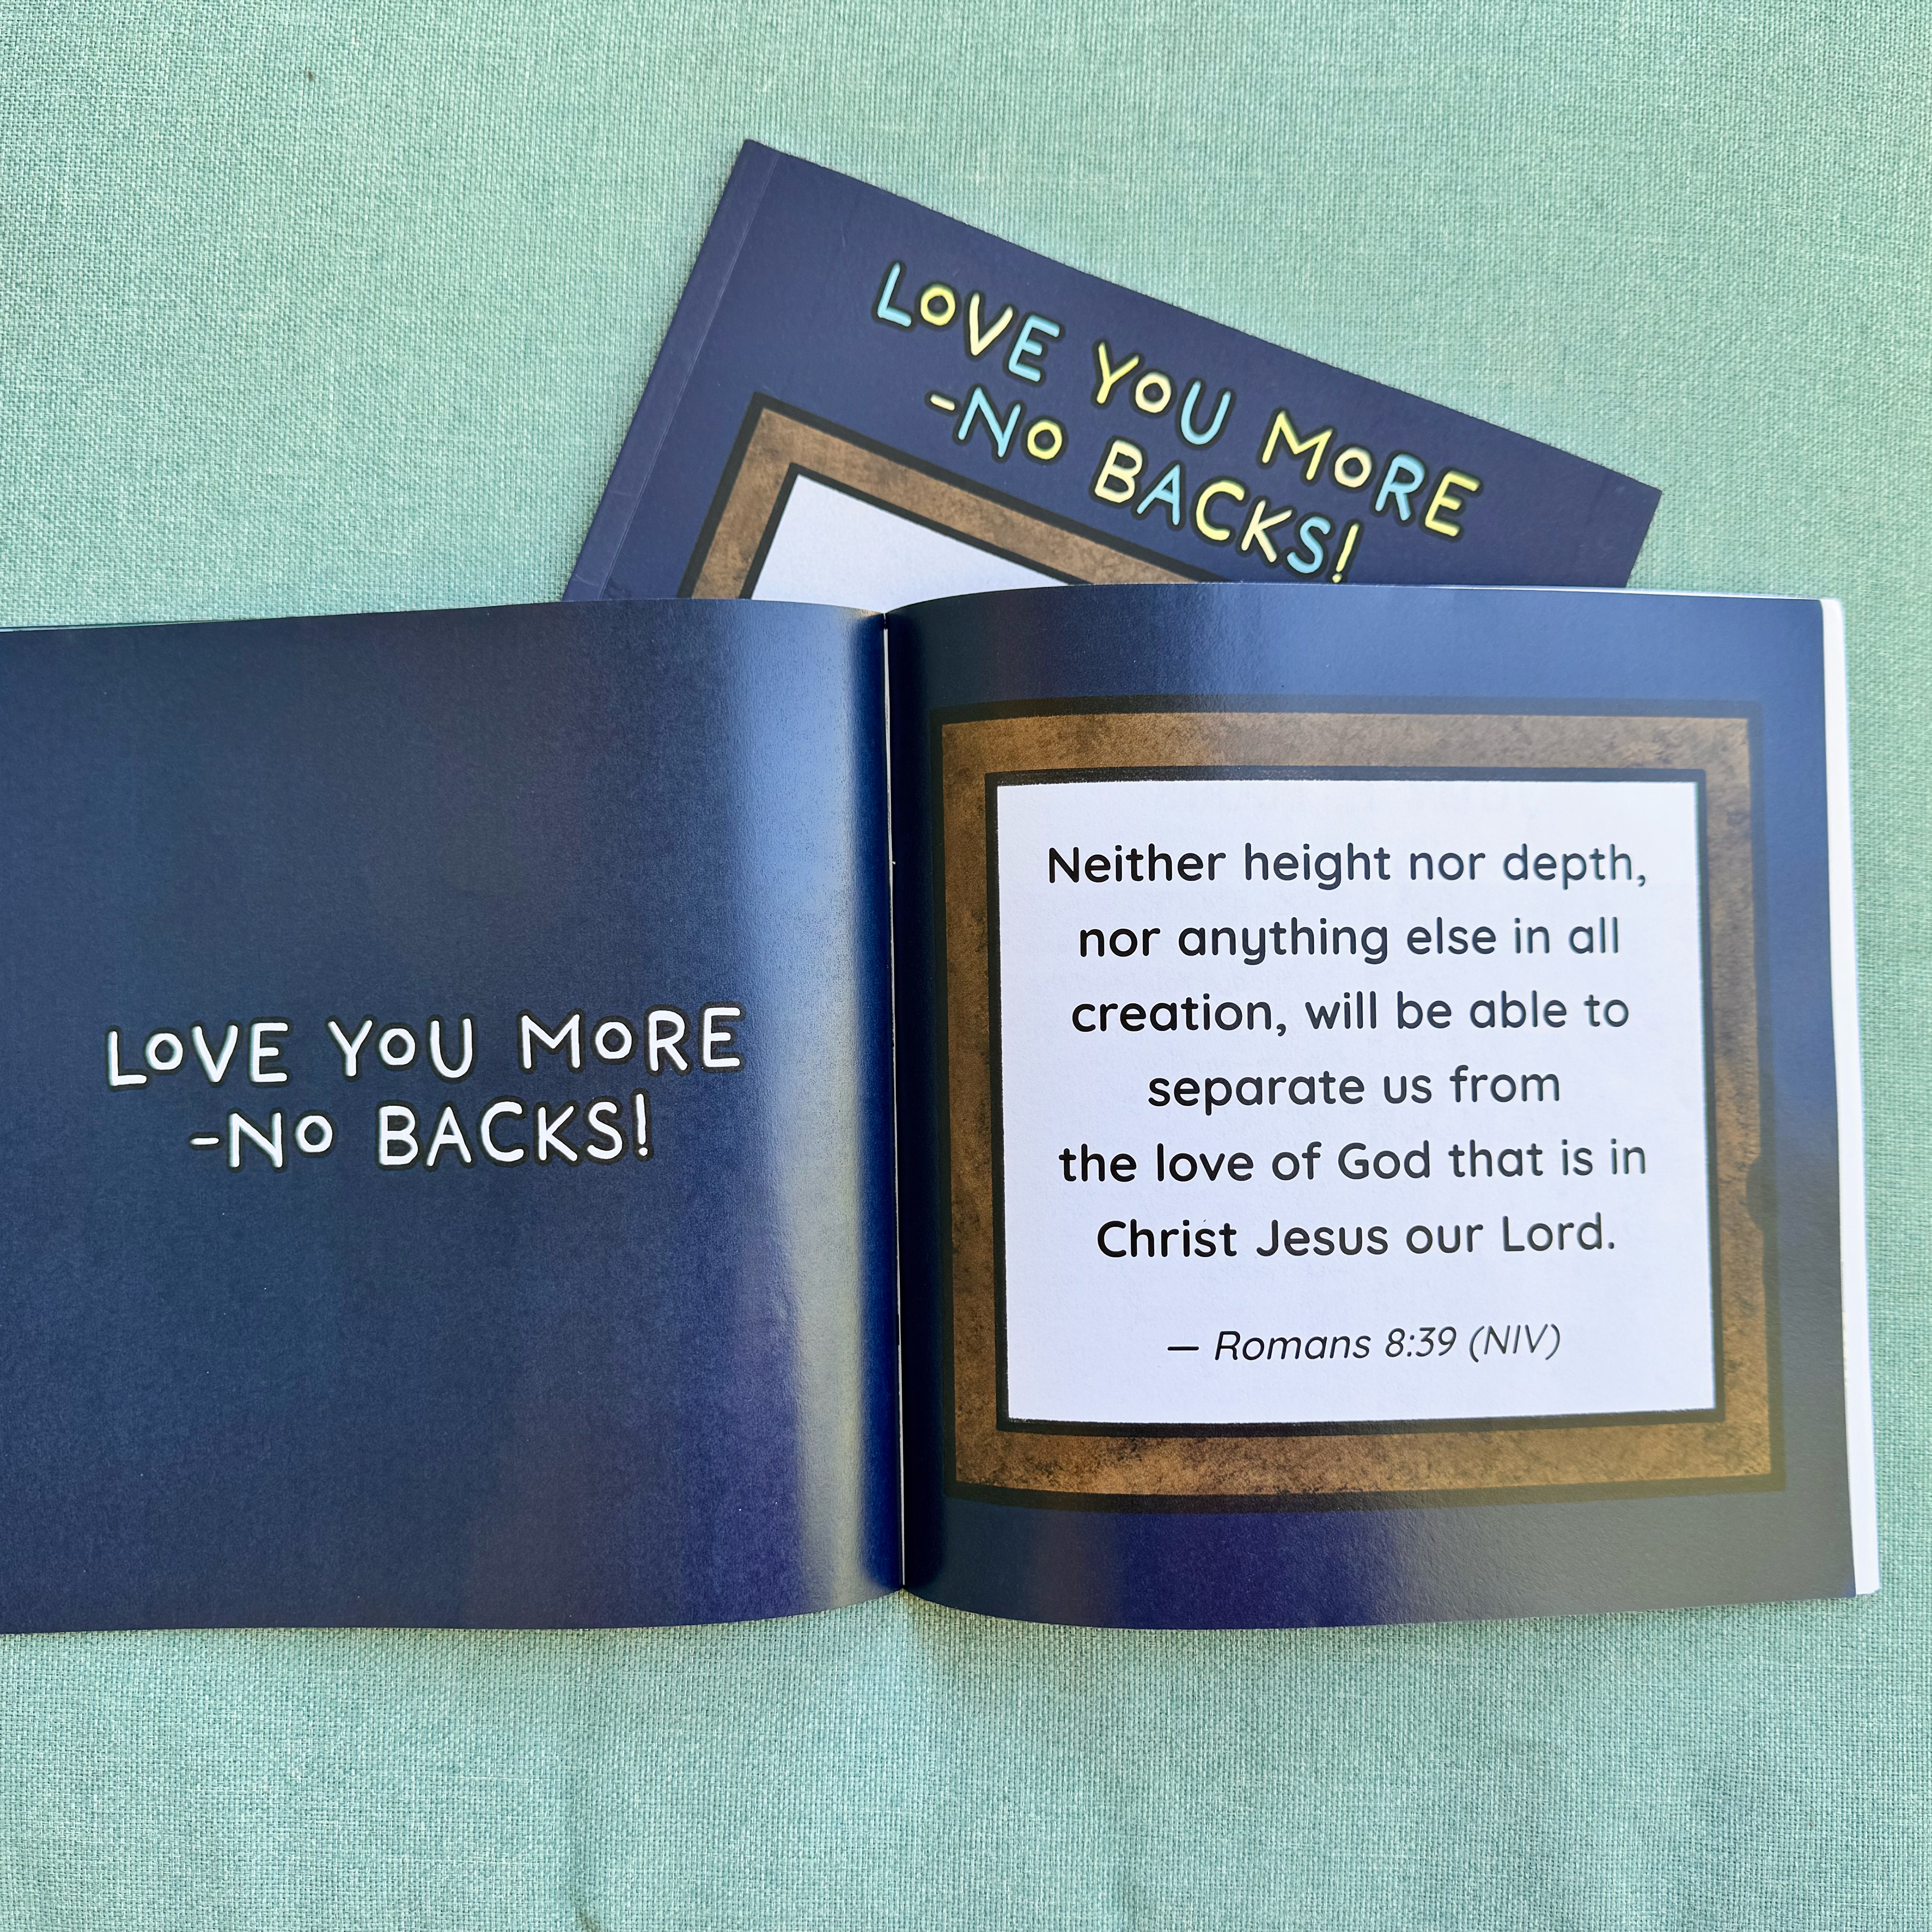 LOVE YOU MORE
-NO BACKS!
LOVE YOU MORE
-NO BACKS!
Neither height nor depth,
nor anything else in all
creation, will be able to
separate us from
the love of God that is in
Christ Jesus our Lord.
— Romans 8:39 (NIV)